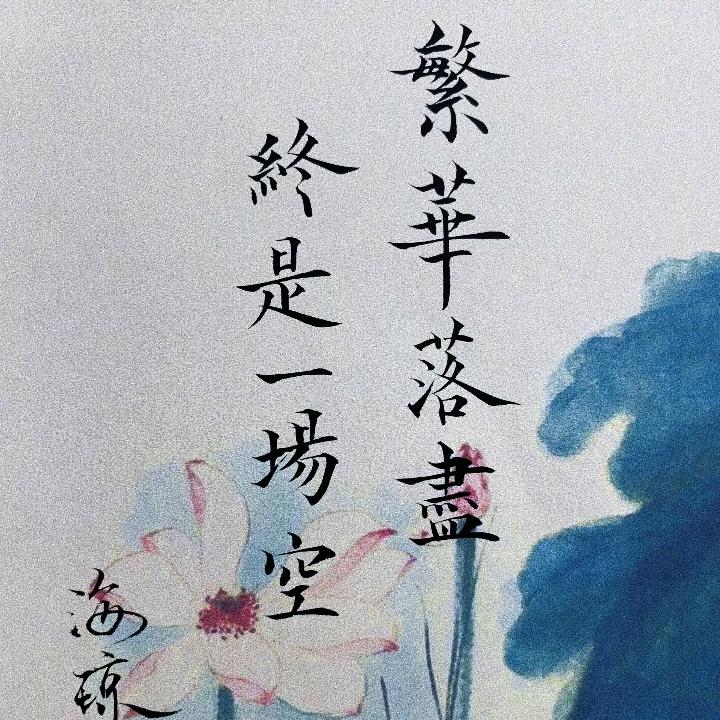 繁華落盡
終是一場空
海琼